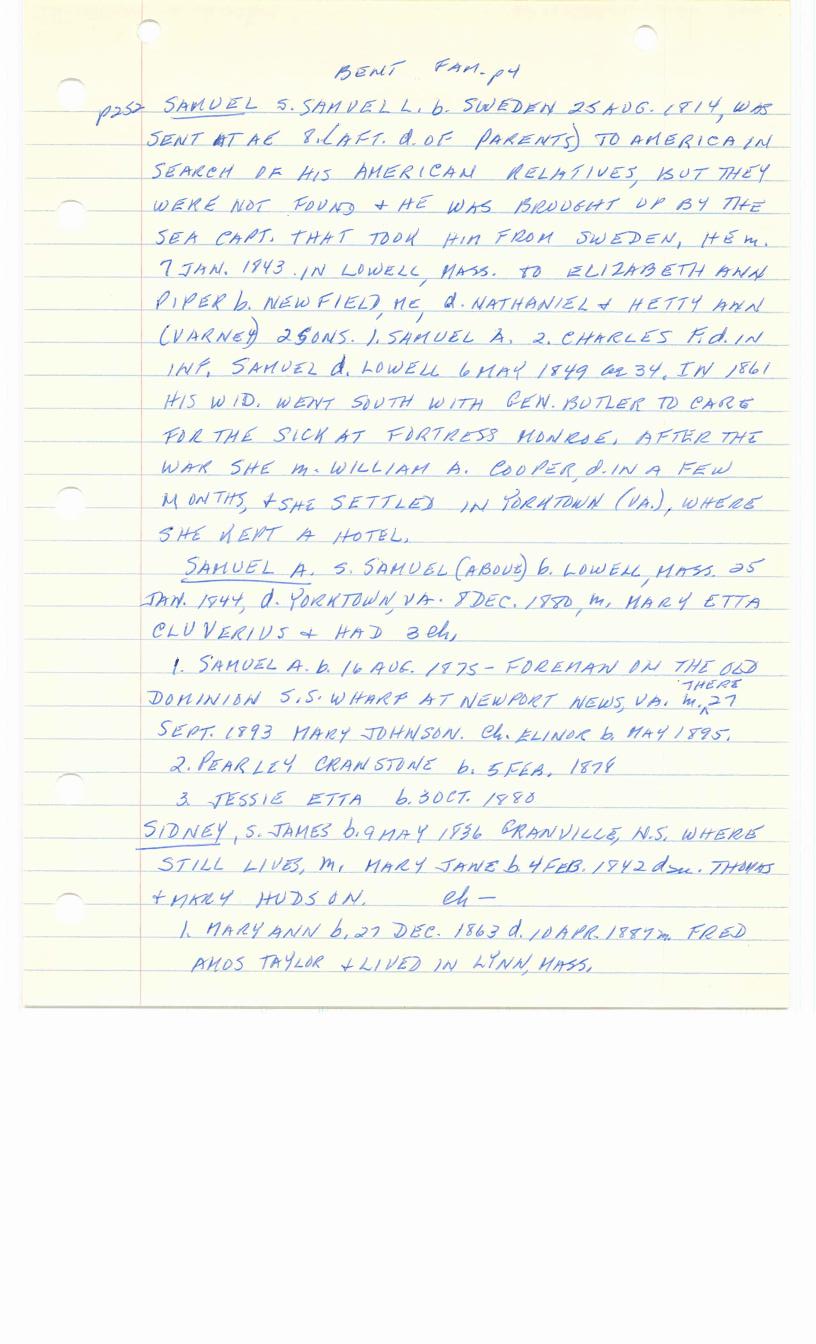 BENT FAM. p4
p252 SAMUEL S. SAMUEL L. b. SWEDEN 25 AUG. 1814, WAS
SENT AT AE 8. (AFT. d. OF PARENTS) TO AMERICA IN
SEARCH OF HIS AMERICAN RELATIVES, BUT THEY
WERE NOT FOUND + HE WAS BROUGHT UP BY THE
SEA CAPT. THAT TOOK HIM FROM SWEDEN, HE m.
7 JAN. 1843 . IN LOWELL, MASS. TO ELIZABETH ANN
PIPER b. NEWFIELD, ME, d. NATHANIEL + HETTY ANN
(VARNEY) 2 SONS. 1. SAMUEL A. 2. CHARLES F. d. IN
INF. SAMUEL d. LOWELL 6 MAY 1849 ae 34. IN 1861
HIS WID. WENT SOUTH WITH GEN. BUTLER TO CARE
FOR THE SICK AT FORTRESS MONROE. AFTER THE
WAR SHE m. WILLIAM A. COOPER, d. IN A FEW
MONTHS, + SHE SETTLED IN YORKTOWN (VA.), WHERE
SHE KEPT A HOTEL.
SAMUEL A. S. SAMUEL (ABOVE) b. LOWELL, MASS. 25
JAN. 1844, d. YORKTOWN, VA. 8 DEC. 1880, m. MARY ETTA
CLUVERIUS + HAD 3 ch,
1. SAMUEL A. b. 16 AUG. 1875 - FOREMAN ON THE OLD
DOMINION S.S. WHARF AT NEWPORT NEWS, VA. m. THERE 27
SEPT. 1893 MARY JOHNSON. Ch. ELINOR b. MAY 1895.
2. PEARLEY CRANSTONE b. 5 FEB. 1878
3. JESSIE ETTA b. 3 OCT. 1880
SIDNEY, S. JAMES b. 9 MAY 1836 GRANVILLE, N.S. WHERE
STILL LIVES, m. MARY JANE b. 4 FEB. 1842 dau. THOMAS
+ MARY HUDSON. Ch —
1. MARY ANN b. 27 DEC. 1863 d. 10 APR. 1887 m. FRED
AMOS TAYLOR + LIVED IN LYNN, MASS.